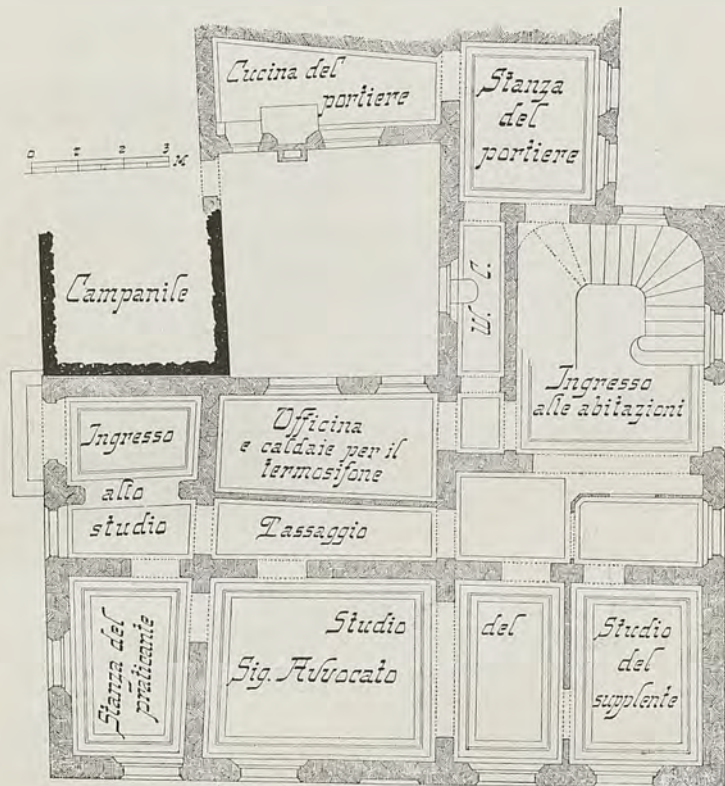 Cucina del
portiere
Stanza
del
portiere
0 1 2 3 M
Campanile
W. C.
Ingresso
alle abitazioni
Ingresso
allo
studio
Officina
e caldaie per il
termosifone
Passaggio
Stanza del
praticante
Studio del
Sig. Avvocato
Studio
del
supplente